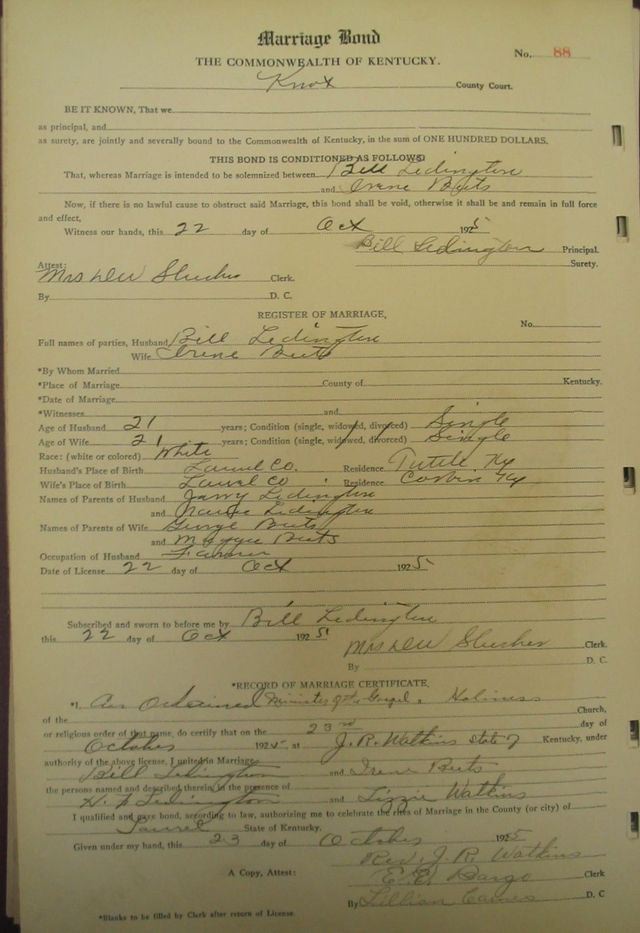 Marriage Bond
No. 88
THE COMMONWEALTH OF KENTUCKY.
Knox County Court.
BE IT KNOWN, That we
as principal, and
as surety, are jointly and severally bound to the Commonwealth of Kentucky, in the sum of ONE HUNDRED DOLLARS.
THIS BOND IS CONDITIONED AS FOLLOWS
That, whereas Marriage is intended to be solemnized between Bill Ledington
and Irene Beets
Now, if there is no lawful cause to obstruct said Marriage, this bond shall be void, otherwise it shall be and remain in full force
and effect,
Witness our hands, this 22 day of Oct 1925
Bill Ledington Principal.
Surety.
Attest:
Mrs Dew Slusher Clerk.
By D. C.
REGISTER OF MARRIAGE,
No.
Full names of parties, Husband Bill Ledington
Wife Irene Beets
*By Whom Married
*Place of Marriage County of Kentucky.
*Date of Marriage
*Witnesses and
Age of Husband 21 years; Condition (single, widowed, divorced) Single
Age of Wife 21 years; Condition (single, widowed, divorced) Single
Race: (white or colored) White
Husband's Place of Birth Laurel Co. Residence Tuttle Ky
Wife's Place of Birth Laurel Co Residence Corbin Ky
Names of Parents of Husband Ledington
and Ledington
Names of Parents of Wife George Beets
and Maggie Beets
Occupation of Husband Farmer
Date of License 22 day of Oct 1925
Subscribed and sworn to before me by Bill Ledington
this 22 day of Oct 1925
Mrs Dew Slusher Clerk.
By D. C.
*RECORD OF MARRIAGE CERTIFICATE.
*I, An Ordained Minister of the Gospel, Holiness
of the Church,
or religious order of that name, do certify that on the 23rd day of
October 1925 at J. R. Watkins State of Kentucky, under
authority of the above license, I united in Marriage
Bill Ledington and Irene Beets
the persons named and described therein, in the presence of
Ledington and Lizzie Watkins
I qualified and gave bond, according to law, authorizing me to celebrate the rites of Marriage in the County (or city) of
Laurel State of Kentucky.
Given under my hand, this 23 day of October 1925
Rev. J. R. Watkins
A Copy, Attest: Dargo Clerk
By Lillian D. C
*Blanks to be filled by Clerk after return of License.